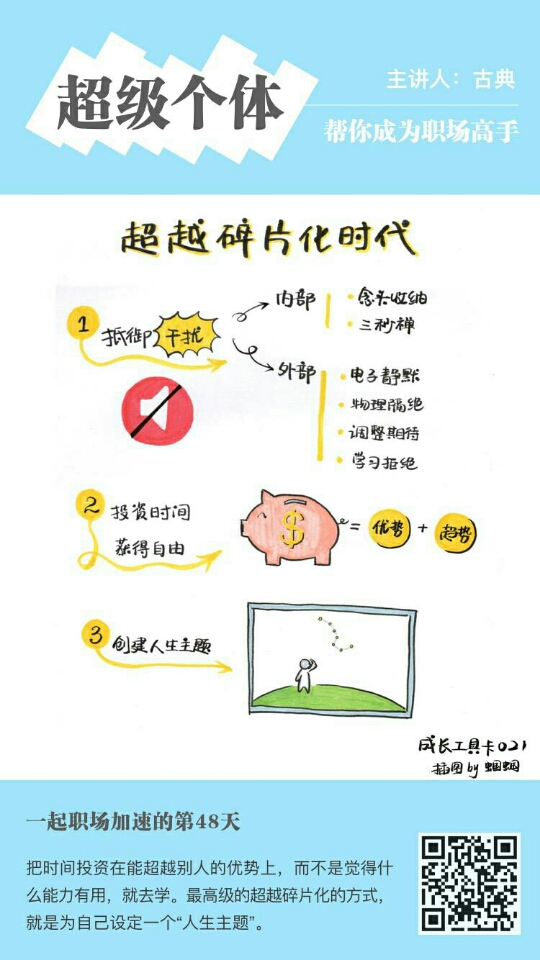 超级个体
主讲人：古典
帮你成为职场高手
超越碎片化时代
1
抵御干扰
内部
· 念头收纳
· 三秒禅
外部
· 电子静默
· 物理隔绝
· 调整期待
· 学习拒绝
2
投资时间
获得自由
$
= 优势 + 趋势
3
创建人生主题
成长工具卡021
插图by 蝈蝈
一起职场加速的第48天
把时间投资在能超越别人的优势上，而不是觉得什
么能力有用，就去学。最高级的超越碎片化的方式，
就是为自己设定一个“人生主题”。